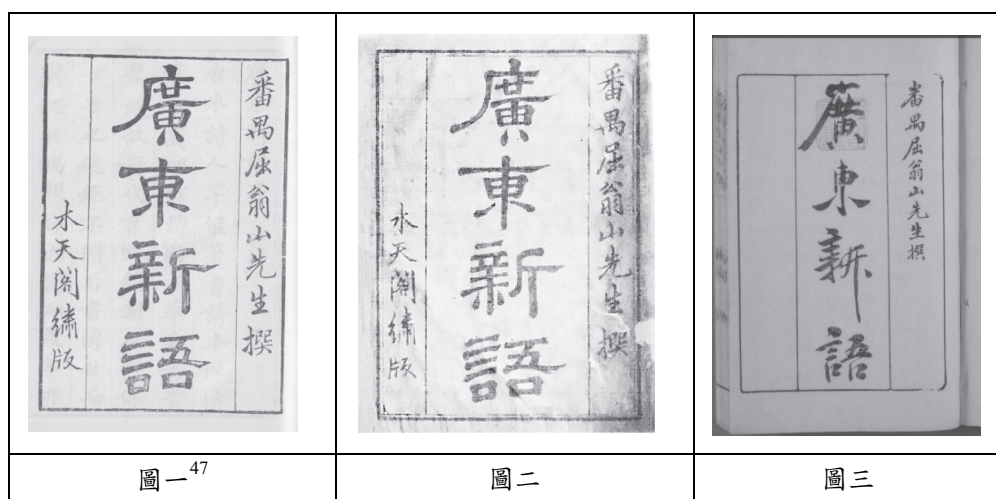 番禺屈翁山先生撰
廣東新語
水天閣繡版
番禺屈翁山先生撰
廣東新語
水天閣繡版
番禺屈翁山先生撰
廣東新語
圖一47
圖二
圖三